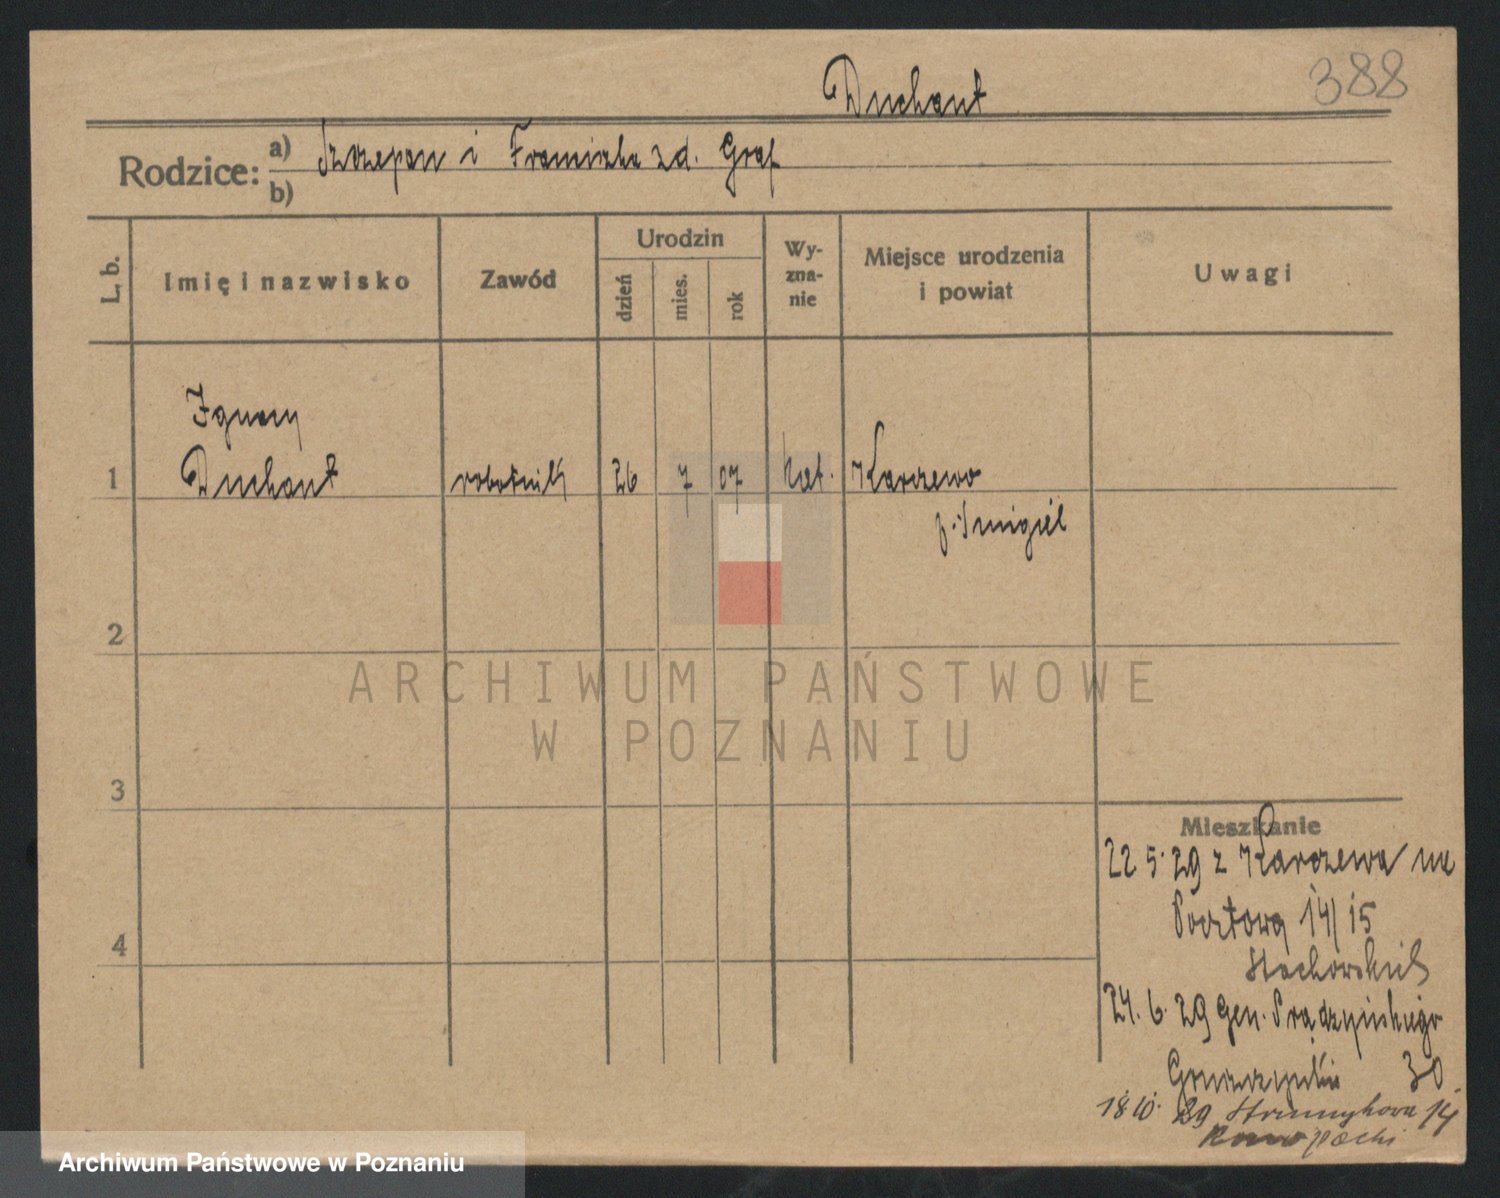 388
Duchant
Rodzice: a) Szczepan i Franciszka zd. Graf
b)
L. b.
Imię i nazwisko
Zawód
Urodzin
dzień
mies.
rok
Wy-
zna-
nie
Miejsce urodzenia
i powiat
Uwagi
Ignacy
1 Duchant robotnik 26 7 07 kat. Karczewo
p. Śmigiel
2
3
4
Mieszkanie
22 5. 29 z Karczewa na
Pocztową 14/15
Stachorskich
24. 6. 29 Gen. Prądzyńskiego
30
18 10. 29 Strumykowa 14
ARCHIWUM PAŃSTWOWE
W POZNANIU
Archiwum Państwowe w Poznaniu